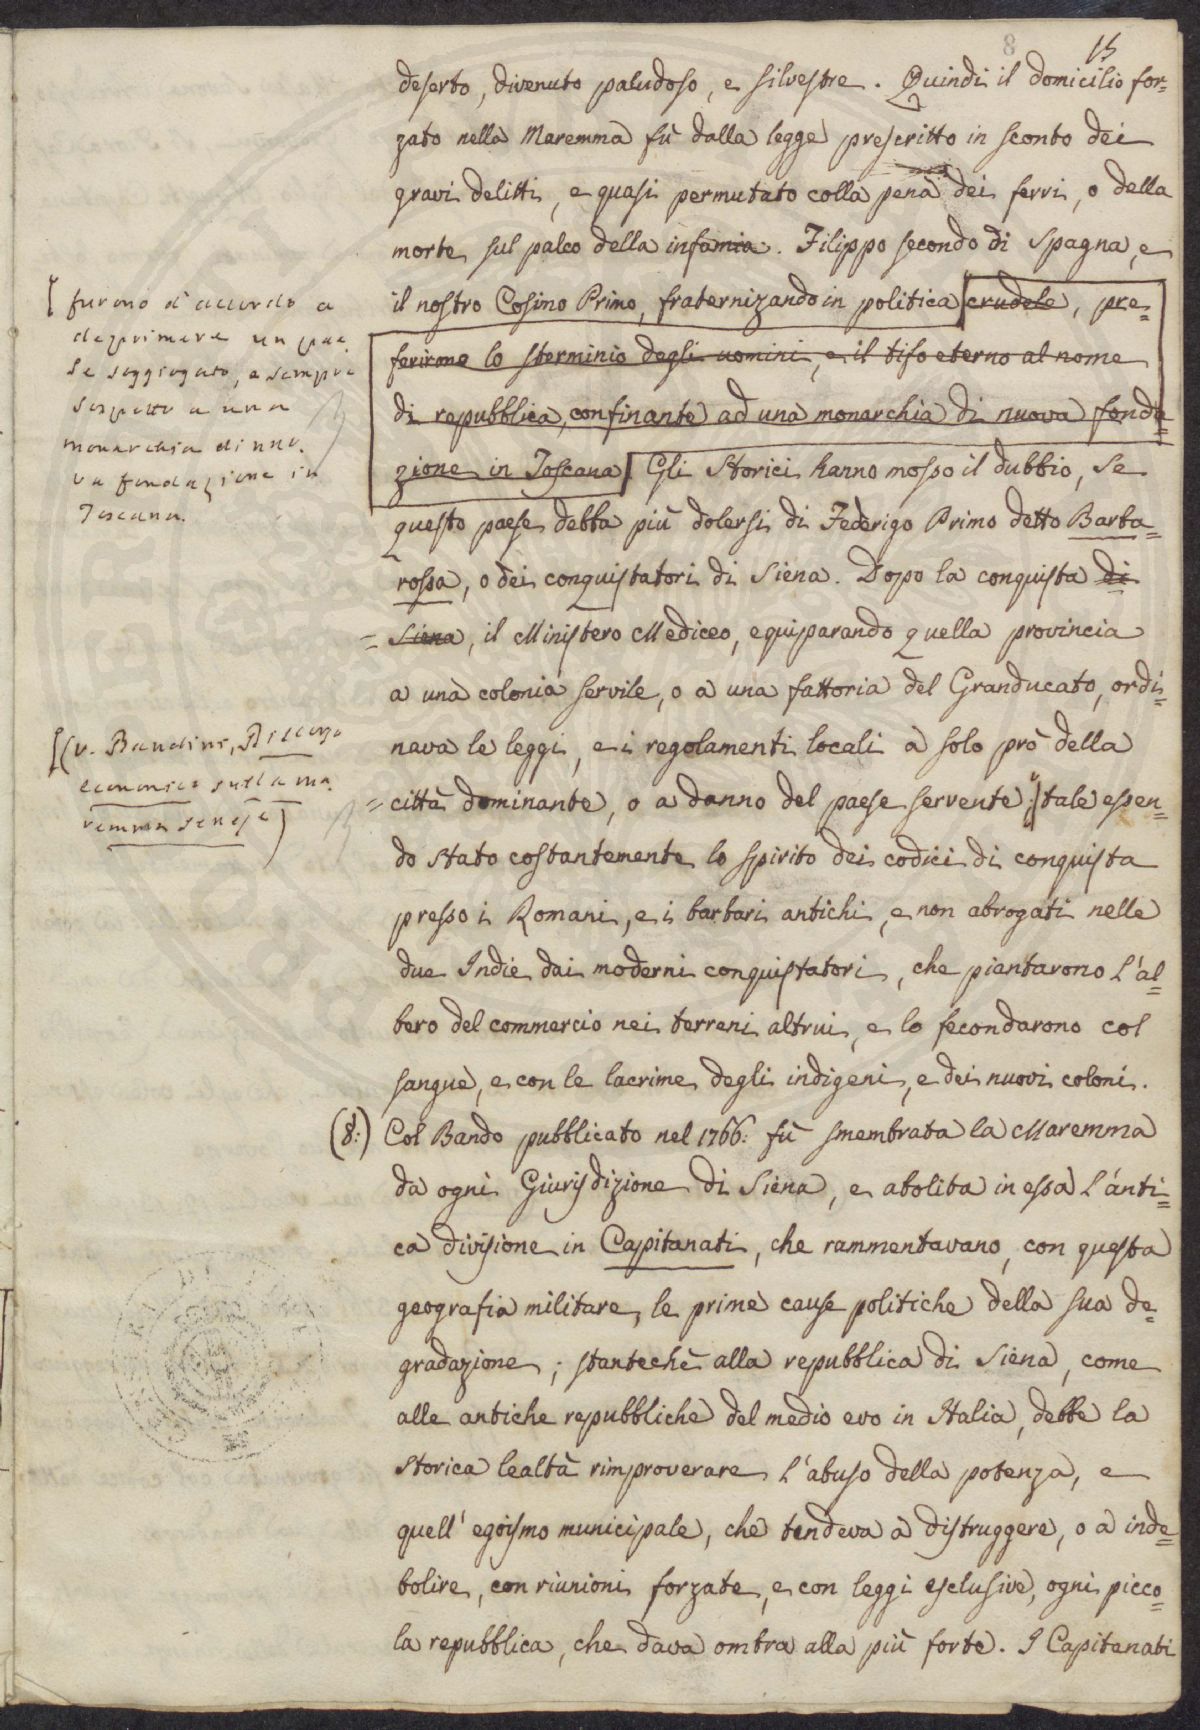 8
15
deserto, divenuto paludoso, e silvestre. Quindi il domicilio for=
zato nella Maremma fù dalla legge prescritto in sconto dei
gravi delitti, e quasi permutato colla pena dei ferri, o della
morte sul palco della infamia. Filippo secondo di Spagna, e
il nostro Cosimo Primo, fraternizando in politica crudele, pre=
ferirono lo sterminio degli uomini, e il tifo eterno al nome
di repubblica, confinante ad una monarchia di nuova fonda=
zione in Toscana. Gli Storici hanno mosso il dubbio, se
questo paese debba più dolersi di Federigo Primo detto Barba=
rossa, o dei conquistatori di Siena. Dopo la conquista di
= Siena, il Ministero Mediceo, equiparando quella provincia
a una colonia servile, o a una fattoria del Granducato, ordi=
nava le leggi, e i regolamenti locali a solo prò della
= città dominante, o a danno del paese servente; tale essen=
do stato costantemente lo spirito dei codici di conquista
presso i Romani, e i barbari antichi, e non abrogati nelle
due Indie dai moderni conquistatori, che piantarono l'al=
bero del commercio nei terreni altrui, e lo fecondarono col
sangue, e con le lacrime degli indigeni, e dei nuovi coloni.
(8:) Col Bando pubblicato nel 1766: fù smembrata la Maremma
da ogni Giurisdizione di Siena, e abolita in essa l'anti=
ca divisione in Capitanati, che rammentavano, con questa
geografia militare, le prime cause politiche della sua de=
gradazione; stantechè alla repubblica di Siena, come
alle antiche repubbliche del medio evo in Italia, debbe la
storica lealtà rimproverare l'abuso della potenza, e
quell' egoismo municipale, che tendeva a distruggere, o a inde=
bolire, con riunioni forzate, e con leggi esclusive, ogni picco=
la repubblica, che dava ombra alla più forte. I Capitanati
[ furono d'accordo a
deprimere un pae
se soggiogato, e sempre
sospetto a una
monarchia di nuo.
va fondazione in
Toscana.
[(v. Bandini, Discorso
economico sulla ma.
remma senese)